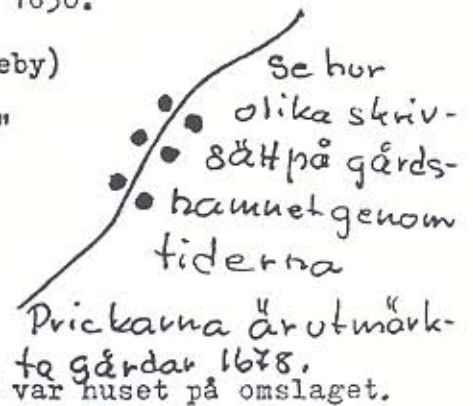 1650.
eby)
"
Se hur
olika skriv-
sätt på gårds-
namnet genom
tiderna
Prickarna är utmärk-
ta gårdar 1678.
var huset på omslaget.